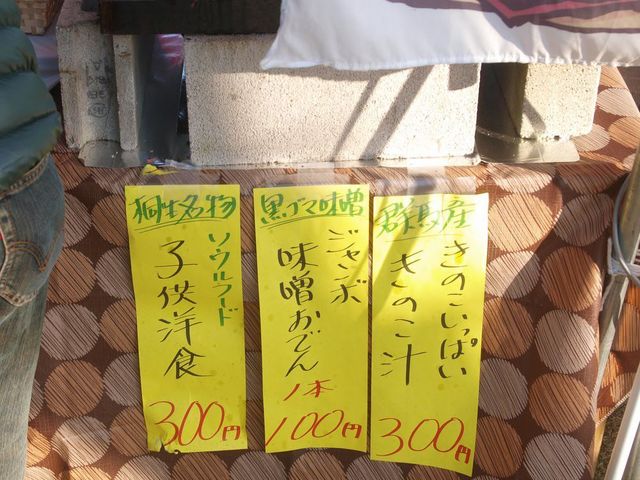 桐生名物
ソウルフード
子供洋食
300円
黒ゴマ味噌
ジャンボ
味噌おでん
1本
100円
群馬産
きのこいっぱい
きのこ汁
300円